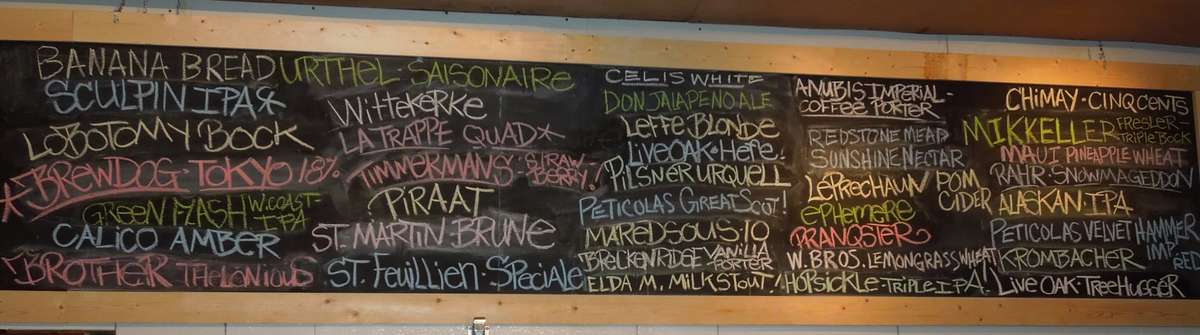 BANANA BREAD
SCULPIN IPA*
LOBOTOMY BOCK
*BREWDOG·TOKYO 18%
GREEN MASH W.COAST-IPA
CALICO AMBER
BROTHER THELONIOUS
URTHEL·SAISONAIRE
WITTEKERKE
LA TRAPPE QUAD*
TIMMERMANS·STRAW-BERRY!
PIRAAT
ST. MARTIN BRUNE
ST. FEUILLIEN·SPECIALE
CELIS WHITE
DON JALAPENO ALE
LEFFE BLONDE
LIVE OAK·HEFE.
PILSNER URQUELL
PETICOLAS GREAT SCOT!
MAREDSOUS·10
BRECKENRIDGE VANILLA PORTER
ELDA M. MILKSTOUT!
ANUBIS IMPERIAL-
COFFEE PORTER
REDSTONE MEAD
SUNSHINE NECTAR
LEPRECHAUN POM CIDER
EPHEMERE
PRANGSTER
W. BROS. LEMONGRASS WHEAT
HOPSICKLE·TRIPLE IPA.
CHIMAY·CINQ CENTS
MIKKELLER FRESLER-TRIPLE BOCK
MAUI PINEAPPLE WHEAT
RAHR·SNOWMAGEDDON
ALASKAN·IPA
PETICOLAS VELVET HAMMER
IMP RED
KROMBACHER
LIVE OAK·TREEHUGGER